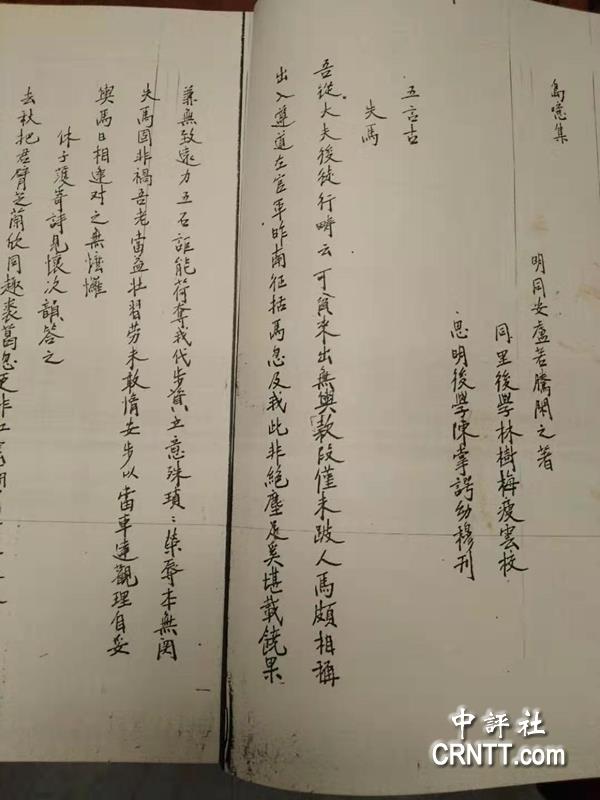 島噫集
明同安盧若騰閑之著
同里後學林樹梅瘦雲校
思明後學陳掌諤幼穆刊
五言古
失馬
吾從大夫後徒行疇云可食來出無輿款段僅未跛人馬頗相稱
出入遵道左官軍昨南征括馬忽及我此非絕塵足奚堪載饒果
兼無致遠力五石詎能荷奪我代步資立意殊瑣〻榮辱本無関
失馬固非禍吾老當益壯習勞未敢惰安步以當車達觀理自妥
輿馬日相違对之無
休子濩寄詩見懷次韻答之
去秋把君臂芝蘭欣同趣裘葛忽更
中評社
CRNTT.com